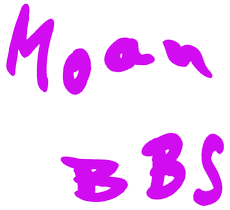 Moan
BBS